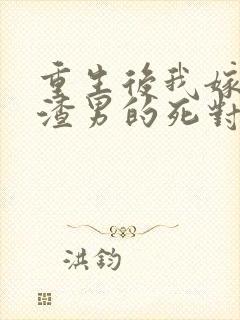 重生後我嫁
渣男的死對
洪鈞